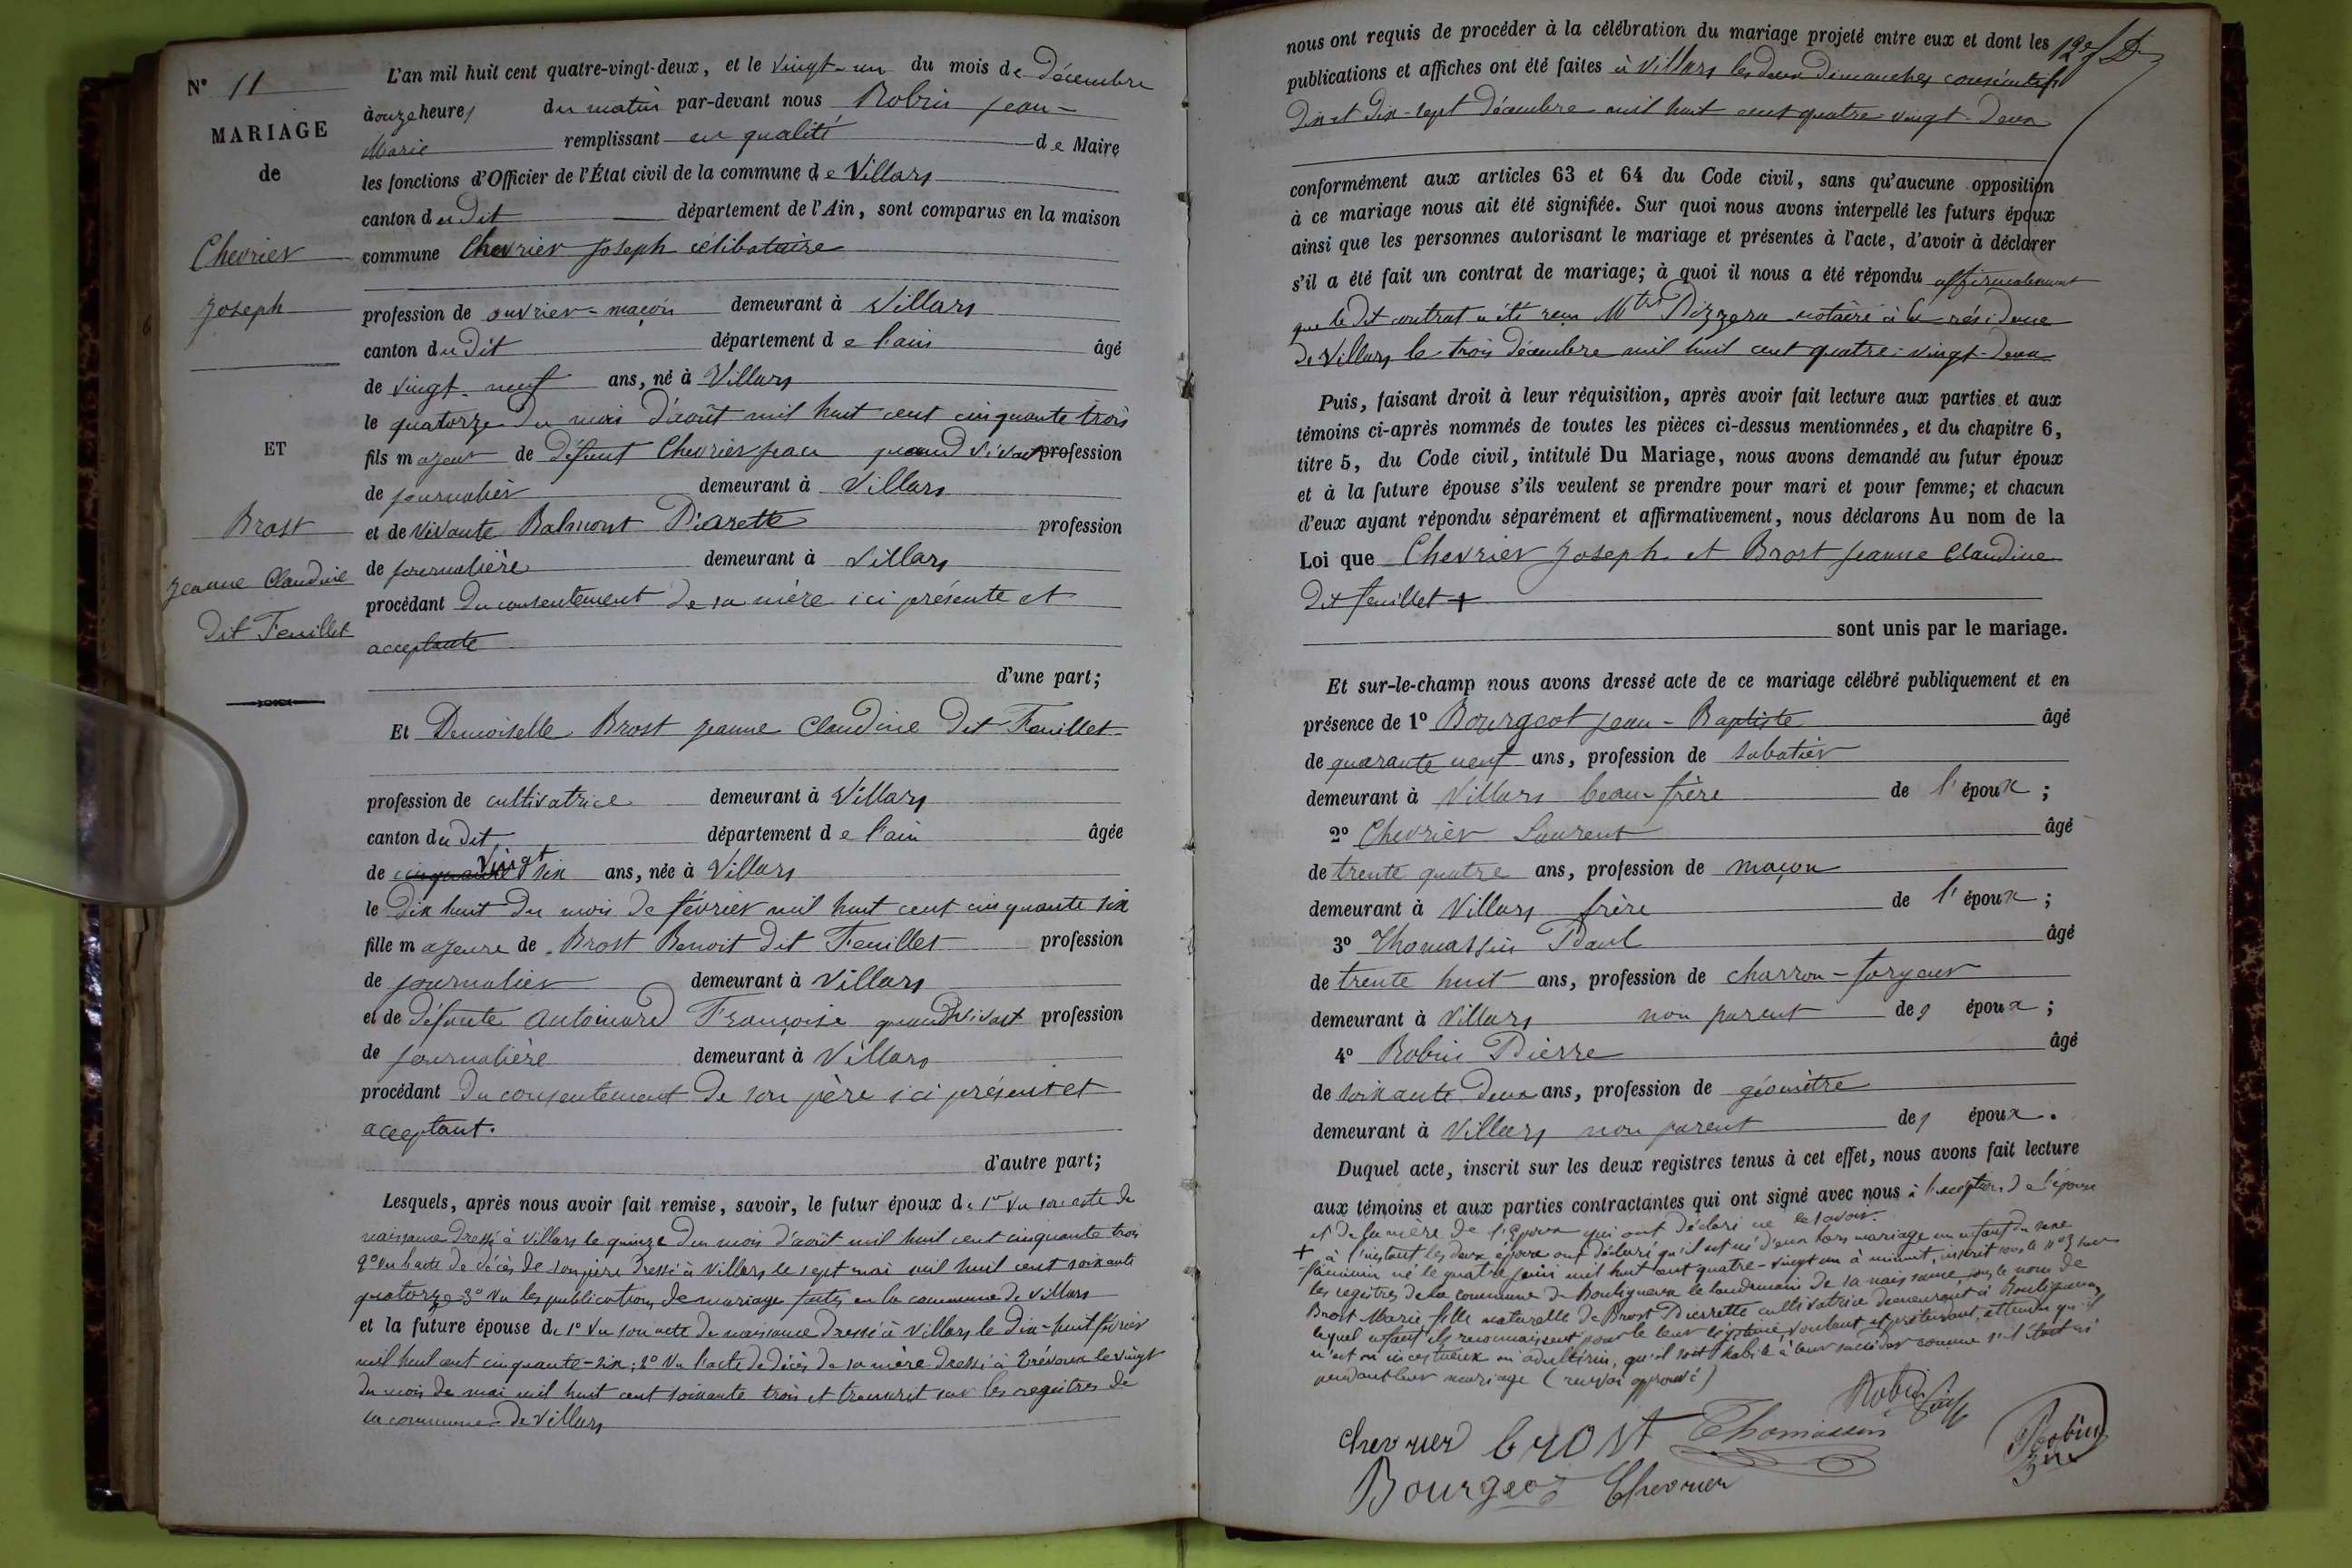 N° 11
MARIAGE
de
Chevrier
Joseph
ET
Brost
Jeanne Claudine
dit Feuillet
L'an mil huit cent quatre-vingt-deux, et le vingt-un du mois de décembre
à onze heures du matin par-devant nous Robin Jean-
Marie remplissant en qualité de Maire
les fonctions d'Officier de l'État civil de la commune de Villars
canton du dit département de l'Ain, sont comparus en la maison
commune Chevrier Joseph célibataire
profession de ouvrier-maçon demeurant à Villars
canton du dit département de l'ain âgé
de vingt-neuf ans, né à Villars
le quatorze du mois d'août mil huit cent cinquante trois
fils majeur de défunt Chevrier Jean quand vivait profession
de journalier demeurant à Villars
et de vivante Balmont Piarette profession
de journalière demeurant à Villars
procédant du consentement de sa mère ici présente et
acceptante
d'une part;
Et Demoiselle Brost Jeanne Claudine dit Feuillet
profession de cultivatrice demeurant à Villars
canton du dit département de l'ain âgée
de cinquante vingt six ans, née à Villars
le dix huit du mois de février mil huit cent cinquante six
fille majeure de Brost Benoit dit Feuillet profession
de journalier demeurant à Villars
et de défunte Antoinard Françoise quand vivait profession
de journalière demeurant à Villars
procédant du consentement de son père ici présent et
acceptant.
d'autre part;
Lesquels, après nous avoir fait remise, savoir, le futur époux de 1° Vu son acte de
naissance dressé à Villars le quinze du mois d'août mil huit cent cinquante trois
2° Vu l'acte de décès de son père dressé à Villars le sept mai mil huit cent soixante
quatorze 3° Vu les publications de mariage faites en la commune de Villars
et la future épouse de 1° Vu son acte de naissance dressé à Villars le dix-huit février
mil huit cent cinquante-six; 2° Vu l'acte de décès de sa mère dressé à Trévoux le vingt
du mois de mai mil huit cent soixante trois et transcrit sur les registres de
la commune de Villars
nous ont requis de procéder à la célébration du mariage projeté entre eux et dont les
publications et affiches ont été faites à Villars les deux dimanches consécutifs
dix et dix-sept décembre mil huit cent quatre-vingt-deux
conformément aux articles 63 et 64 du Code civil, sans qu'aucune opposition
à ce mariage nous ait été signifiée. Sur quoi nous avons interpellé les futurs époux
ainsi que les personnes autorisant le mariage et présentes à l'acte, d'avoir à déclarer
s'il a été fait un contrat de mariage; à quoi il nous a été répondu affirmativement
que le dit contrat a été reçu Mtre Pizzera notaire à la résidence
de Villars le trois décembre mil huit cent quatre-vingt-deux
Puis, faisant droit à leur réquisition, après avoir fait lecture aux parties et aux
témoins ci-après nommés de toutes les pièces ci-dessus mentionnées, et du chapitre 6,
titre 5, du Code civil, intitulé Du Mariage, nous avons demandé au futur époux
et à la future épouse s'ils veulent se prendre pour mari et pour femme; et chacun
d'eux ayant répondu séparément et affirmativement, nous déclarons Au nom de la
Loi que Chevrier Joseph et Brost Jeanne Claudine
dit feuillet +
sont unis par le mariage.
Et sur-le-champ nous avons dressé acte de ce mariage célébré publiquement et en
présence de 1° Bourgeot Jean-Baptiste âgé
de quarante neuf ans, profession de sabatier
demeurant à Villars beau-frère de l'époux;
2° Chevrier Laurent âgé
de trente quatre ans, profession de maçon
demeurant à Villars frère de l'époux;
3° Thomassin Paul âgé
de trente huit ans, profession de charron-forgeur
demeurant à Villars non parent des époux;
4° Robin Pierre âgé
de soixante deux ans, profession de géomètre
demeurant à Villars non parent des époux.
Duquel acte, inscrit sur les deux registres tenus à cet effet, nous avons fait lecture
aux témoins et aux parties contractantes qui ont signé avec nous à l'exception de l'épouse
et de la mère de l'époux qui ont déclaré ne le savoir.
+ à l'instant les deux époux ont déclaré qu'il est né d'eux hors mariage un enfant du sexe
féminin né le quatre juin mil huit cent quatre-vingt un à minuit, inscrit sous le n° 3 sur
les registres de la commune de Bouligneux le lendemain de sa naissance, sous le nom de
Brost Marie fille naturelle de Brost Pierrette cultivatrice demeurant à Bouligneux,
lequel enfant ils reconnaissent pour le leur légitime, voulant et prétendant, attendu qu'il
n'est ni incestueux ni adultérin, qu'il soit habile à leur succéder comme s'il était né
pendant leur mariage (renvoi approuvé)
Robin
chevrier brost Thomassin
Robin
Bourgeot Chevrier